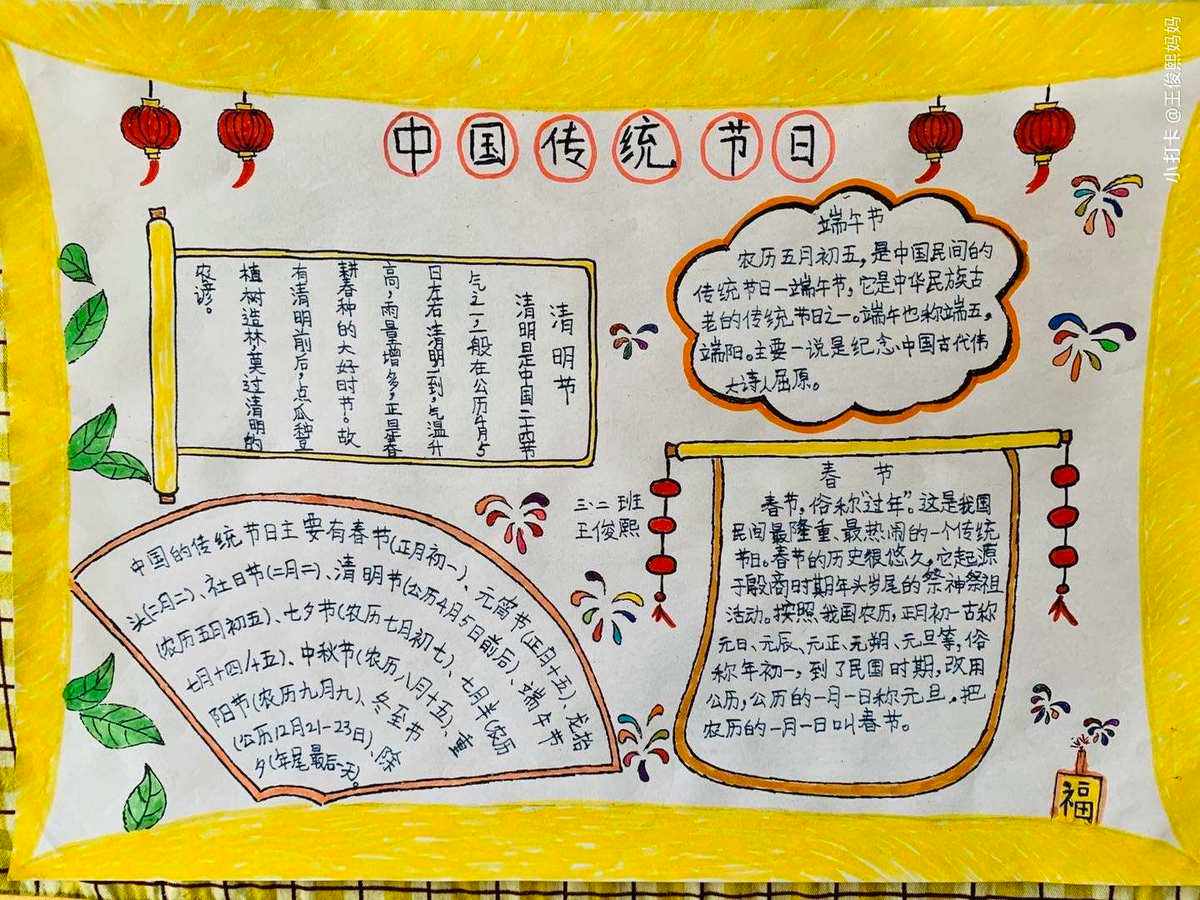 中国传统节日
清明节
清明是中国二十四节
气之一,一般在公历4月5
日左右清明一到,气温升
高,雨量增多,正是春
耕春种的大好时节。故
有清明前后,点瓜种豆
植树造林,莫过清明的
农谚。
端午节
农历五月初五,是中国民间的
传统节日一端午节,它是中华民族古
老的传统节日之一。端午也称端五,
端阳。主要一说是纪念中国古代伟
大诗人屈原。
中国的传统节日主要有春节(正月初一)、元宵节(正月十五)、龙抬
头(二月二)、社日节(二月二)、清明节(公历4月5日前后)、端午节
(农历五月初五)、七夕节(农历七月初七)、七月半(农历
七月十四/十五)、中秋节(农历八月十五)、重
阳节(农历九月九)、冬至节
(公历12月21-23日)、除
夕(年尾最后一天)。
三、二班
王俊熙
春节
春节,俗称“过年”。这是我国
民间最隆重、最热闹的一个传统
节日。春节的历史很悠久,它起源
于殷商时期年头岁尾的祭神祭祖
活动。按照我国农历,正月初一古称
元日、元辰、元正、元朔、元旦等,俗
称年初一,到了民国时期,改用
公历,公历的一月一日称元旦,把
农历的一月一日叫春节。
福
小打卡 @王俊熙妈妈